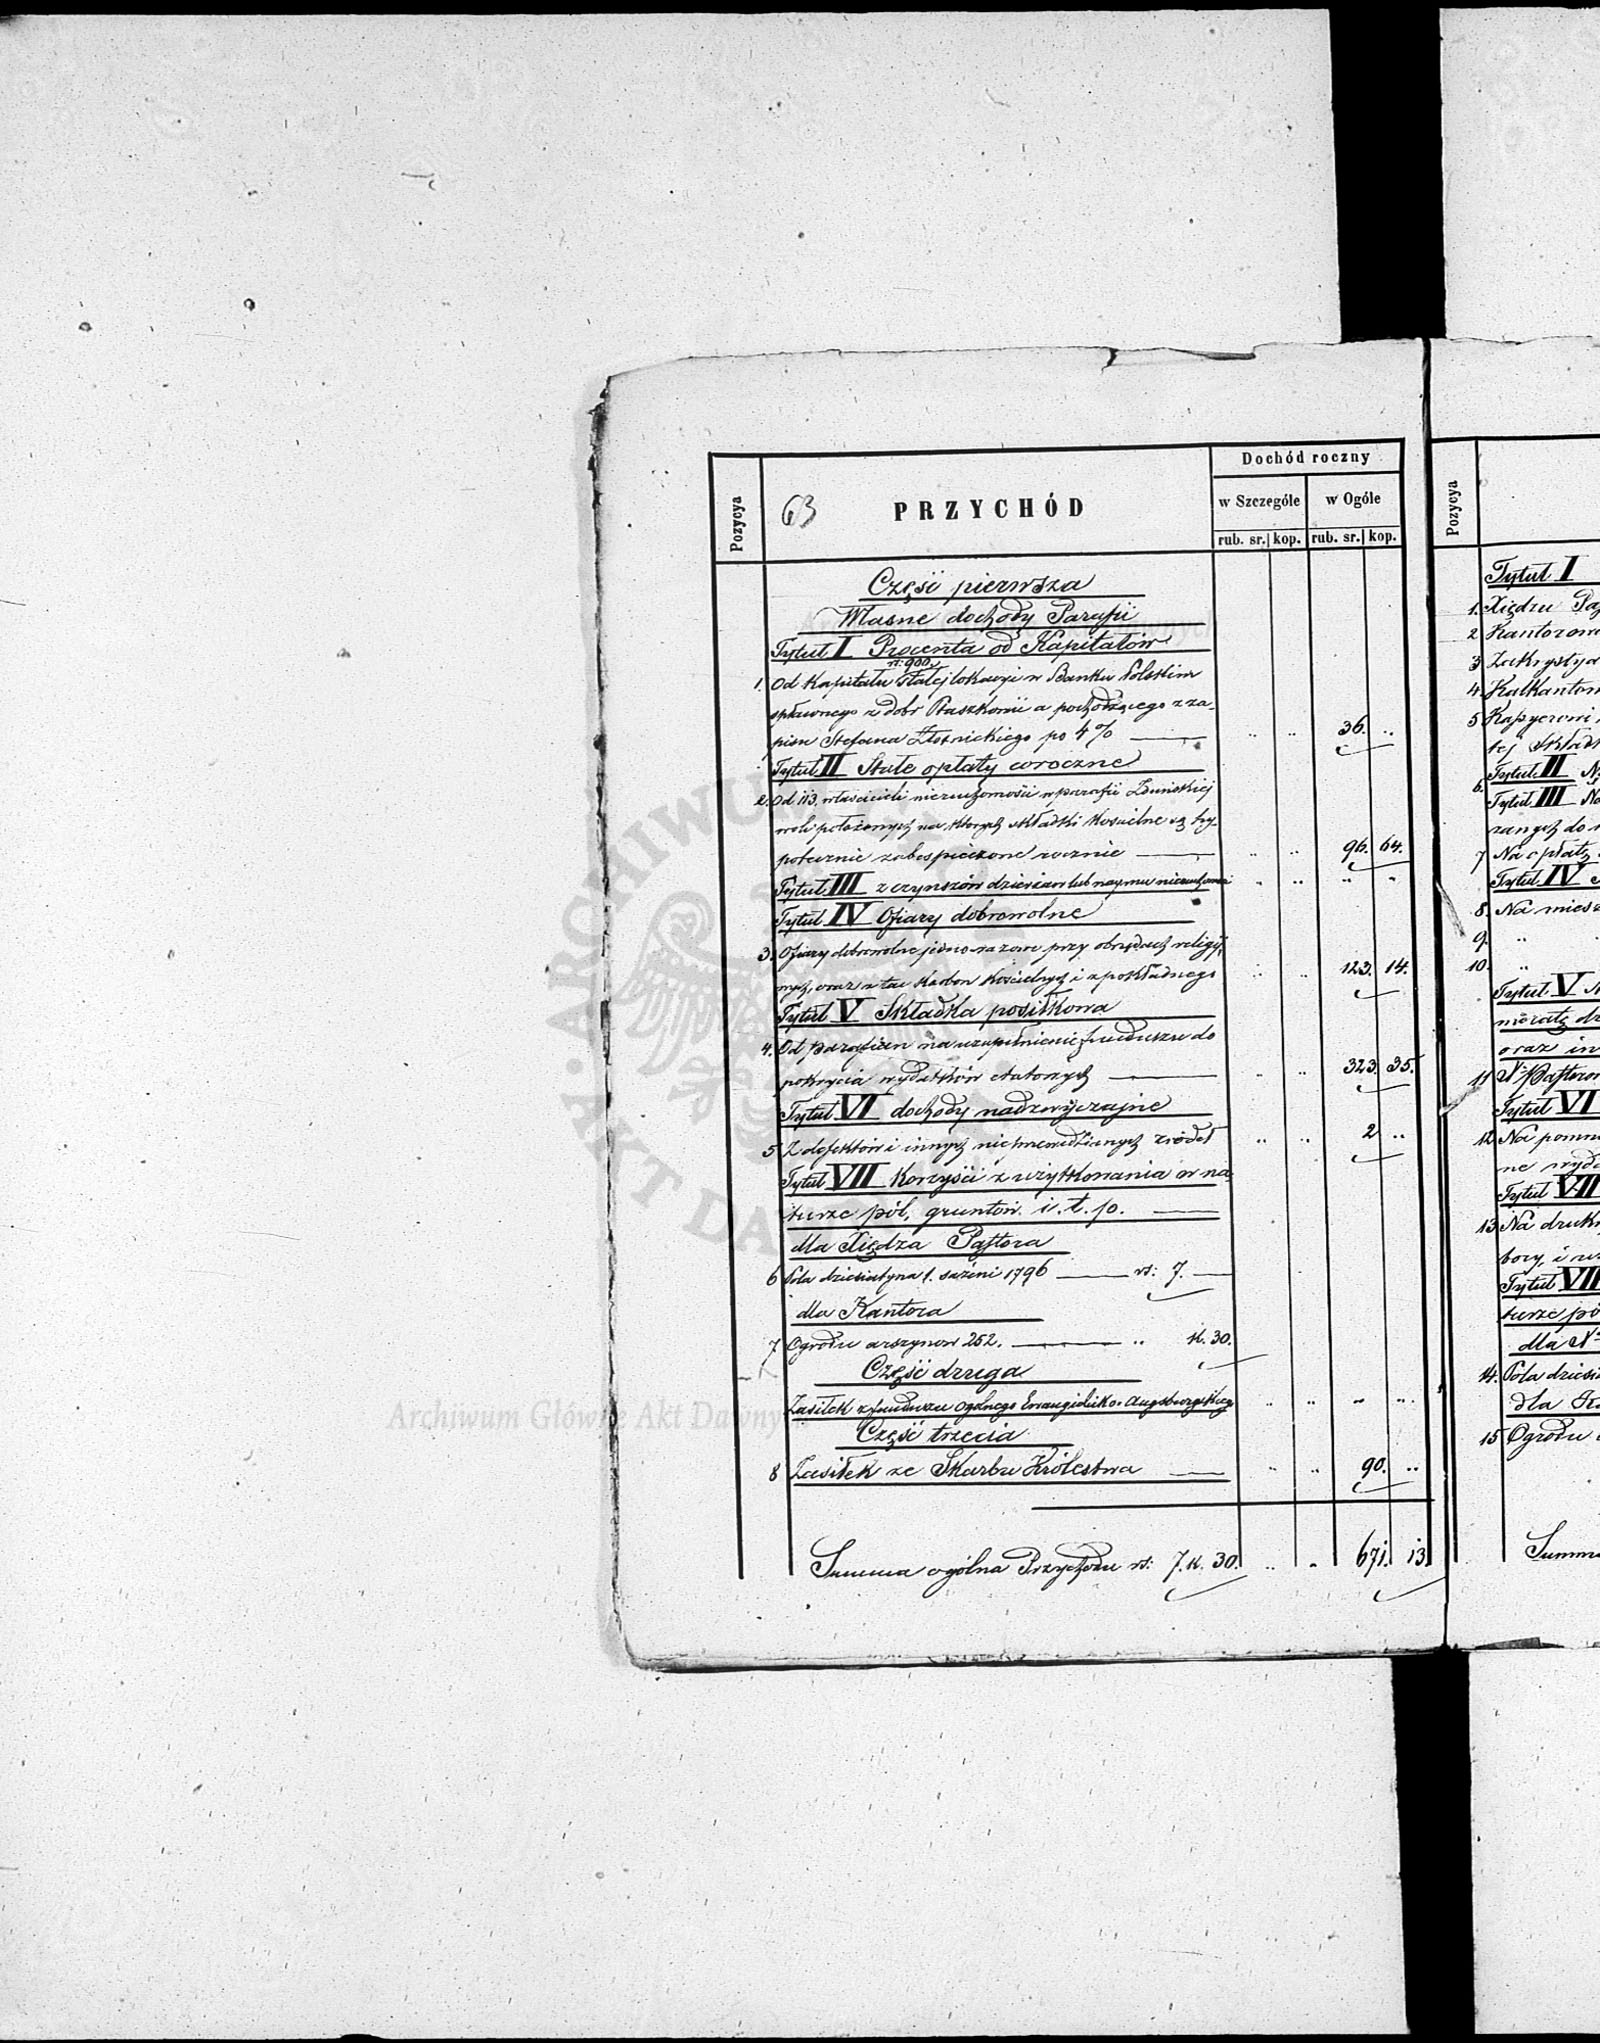 Dochód roczny
Pozycya
63
PRZYCHÓD
w Szczególe
w Ogóle
rub. sr. kop. rub. sr. kop.
Część pierwsza
Własne dochody Parafii
Tytuł I Procenta od Kapitałów
rs: 900
1. Od Kapitału stałej lokacyi w Banku Polskim
spławnego z dóbr Ptaszkowic a pochodzącego z za-
pisu Stefana Złotnickiego po 4% 36. ..
Tytuł II Stałe opłaty coroczne
2. Od 113 właścicieli nieruchomości w parafii Zduńskiej
woli położonych na których składki Kościelne są hy-
potecznie zabespieczone rocznie 96. 64.
Tytuł III z czynszów dzierżaw lub najmu nieruchomości
Tytuł IV Ofiary dobrowolne
3. Ofiary dobrowolne jedno-razowe przy obrzędach religij-
nych, oraz z tac skarbon Kościelnych i z pokładnego 123. 14.
Tytuł V Składka posiłkowa
4. Od parafian na uzupełnienie funduszu do
pokrycia wydatków etatowych 323. 35.
Tytuł VI dochody nadzwyczajne
5 Z defektów i innych nieprzewidzianych źródeł 2 ..
Tytuł VII Korzyści z użytkowania w na-
turze pól, gruntów i. t. p.
dla Xiędza Pastora
6 Pola dziesiatyna 1. sażeni 1796 rs: 7.
dla Kantora
7 Ogrodu arszynow 252. .. k. 30.
Część druga
Zasiłek z funduszu ogólnego Ewangielicko-Augsburgskiego
Część trzecia
8 Zasiłek ze Skarbu Królestwa 90. ..
Summa ogólna Przychodu rs: 7. k. 30. 671. 13
Archiwum Główne Akt Dawnych
Pozycya
Tytuł I
1. Xiędzu
2
3
4.
5
Tytuł II
6.
Tytuł III
7 Na opłatę
Tytuł IV
8. Na
9. ..
10. ..
Tytuł V
oraz
11
Tytuł VI
12
Tytuł VII
13 Na
Tytuł VII
dla
14. Pola
dla
15 Ogrodu